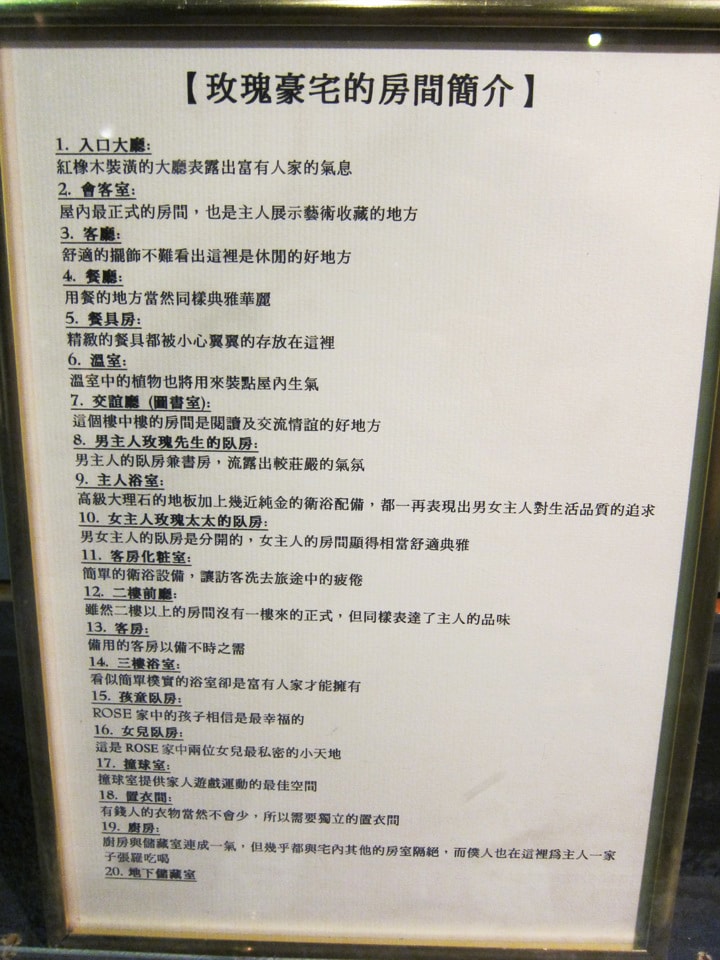 【玫瑰豪宅的房間簡介】
1. 入口大廳:
紅橡木裝潢的大廳表露出富有人家的氣息
2. 會客室:
屋內最正式的房間，也是主人展示藝術收藏的地方
3. 客廳:
舒適的擺飾不難看出這裡是休閒的好地方
4. 餐廳:
用餐的地方當然同樣典雅華麗
5. 餐具房:
精緻的餐具都被小心翼翼的存放在這裡
6. 溫室:
溫室中的植物也將用來裝點屋內生氣
7. 交誼廳 (圖書室):
這個樓中樓的房間是閱讀及交流情誼的好地方
8. 男主人玫瑰先生的臥房:
男主人的臥房兼書房，流露出較莊嚴的氣氛
9. 主人浴室:
高級大理石的地板加上幾近純金的衛浴配備，都一再表現出男女主人對生活品質的追求
10. 女主人玫瑰太太的臥房:
男女主人的臥房是分開的，女主人的房間顯得相當舒適典雅
11. 客房化粧室:
簡單的衛浴設備，讓訪客洗去旅途中的疲倦
12. 二樓前廳:
雖然二樓以上的房間沒有一樓來的正式，但同樣表達了主人的品味
13. 客房:
備用的客房以備不時之需
14. 三樓浴室:
看似簡單樸實的浴室卻是富有人家才能擁有
15. 孩童臥房:
ROSE 家中的孩子相信是最幸福的
16. 女兒臥房:
這是 ROSE 家中兩位女兒最私密的小天地
17. 撞球室:
撞球室提供家人遊戲運動的最佳空間
18. 置衣間:
有錢人的衣物當然不會少，所以需要獨立的置衣間
19. 廚房:
廚房與儲藏室連成一氣，但幾乎都與宅內其他的房室隔絕，而僕人也在這裡為主人一家
子張羅吃喝
20. 地下儲藏室